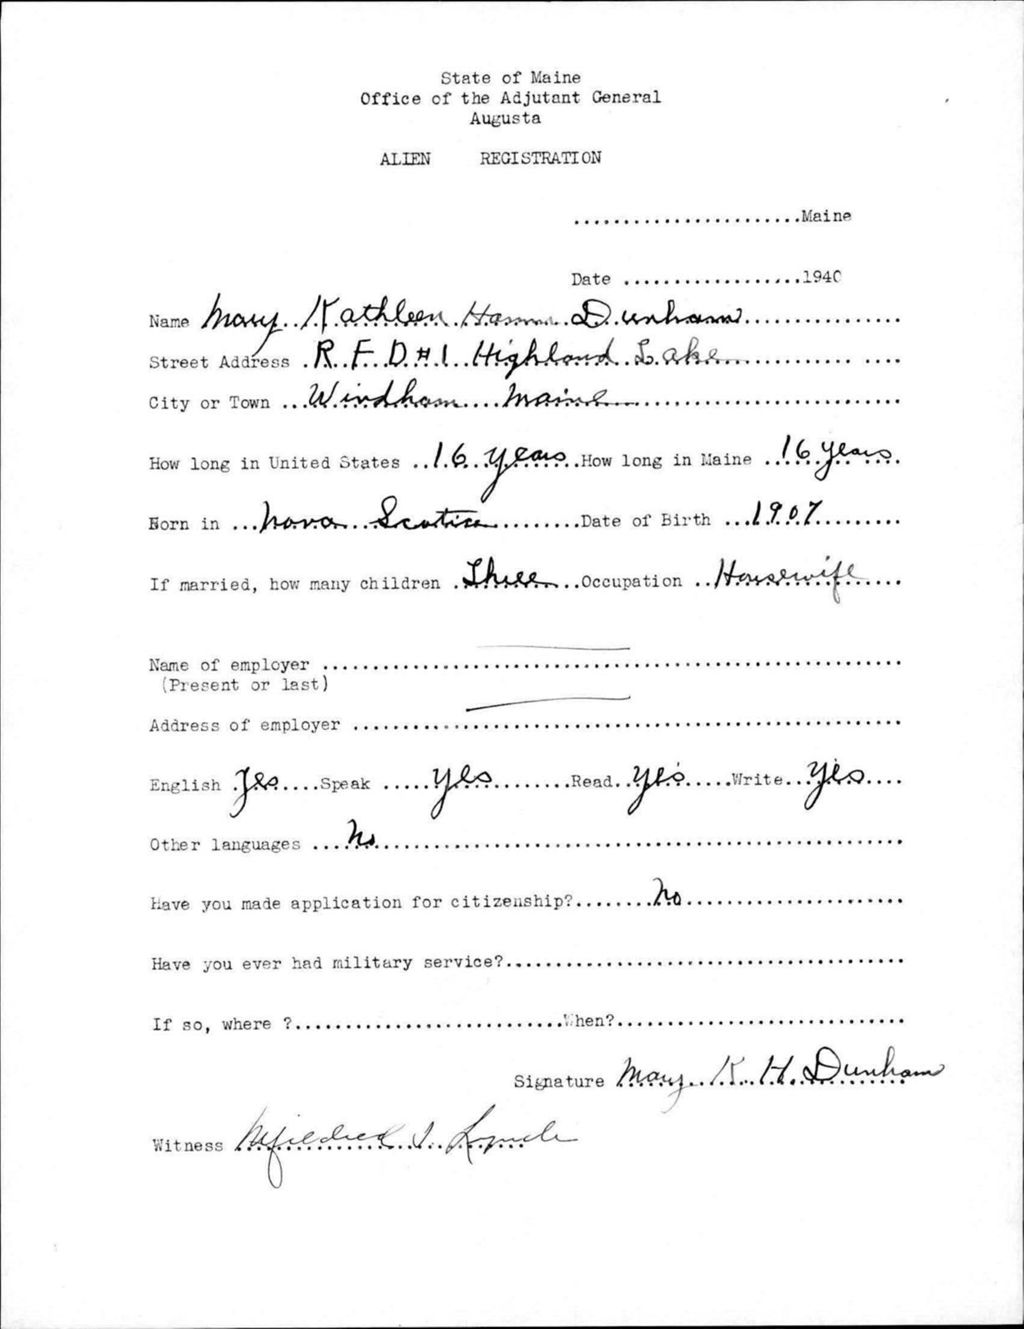 State of Maine
Office of the Adjutant General
Augusta
ALIEN REGISTRATION
.......................Maine
Date ..................1940
Name Mary Kathleen Hamm Dunham
Street Address R.F.D.#1 Highland Lake
City or Town Windham Maine
How long in United States 16 years How long in Maine 16 years
Born in Nova Scotia Date of Birth 1907
If married, how many children Three Occupation Housewife
Name of employer
(Present or last)
Address of employer
English Yes Speak yes Read yes Write yes
Other languages No
Have you made application for citizenship? No
Have you ever had military service?
If so, where ? When?
Signature Mary K. H. Dunham
Witness Mildred I.